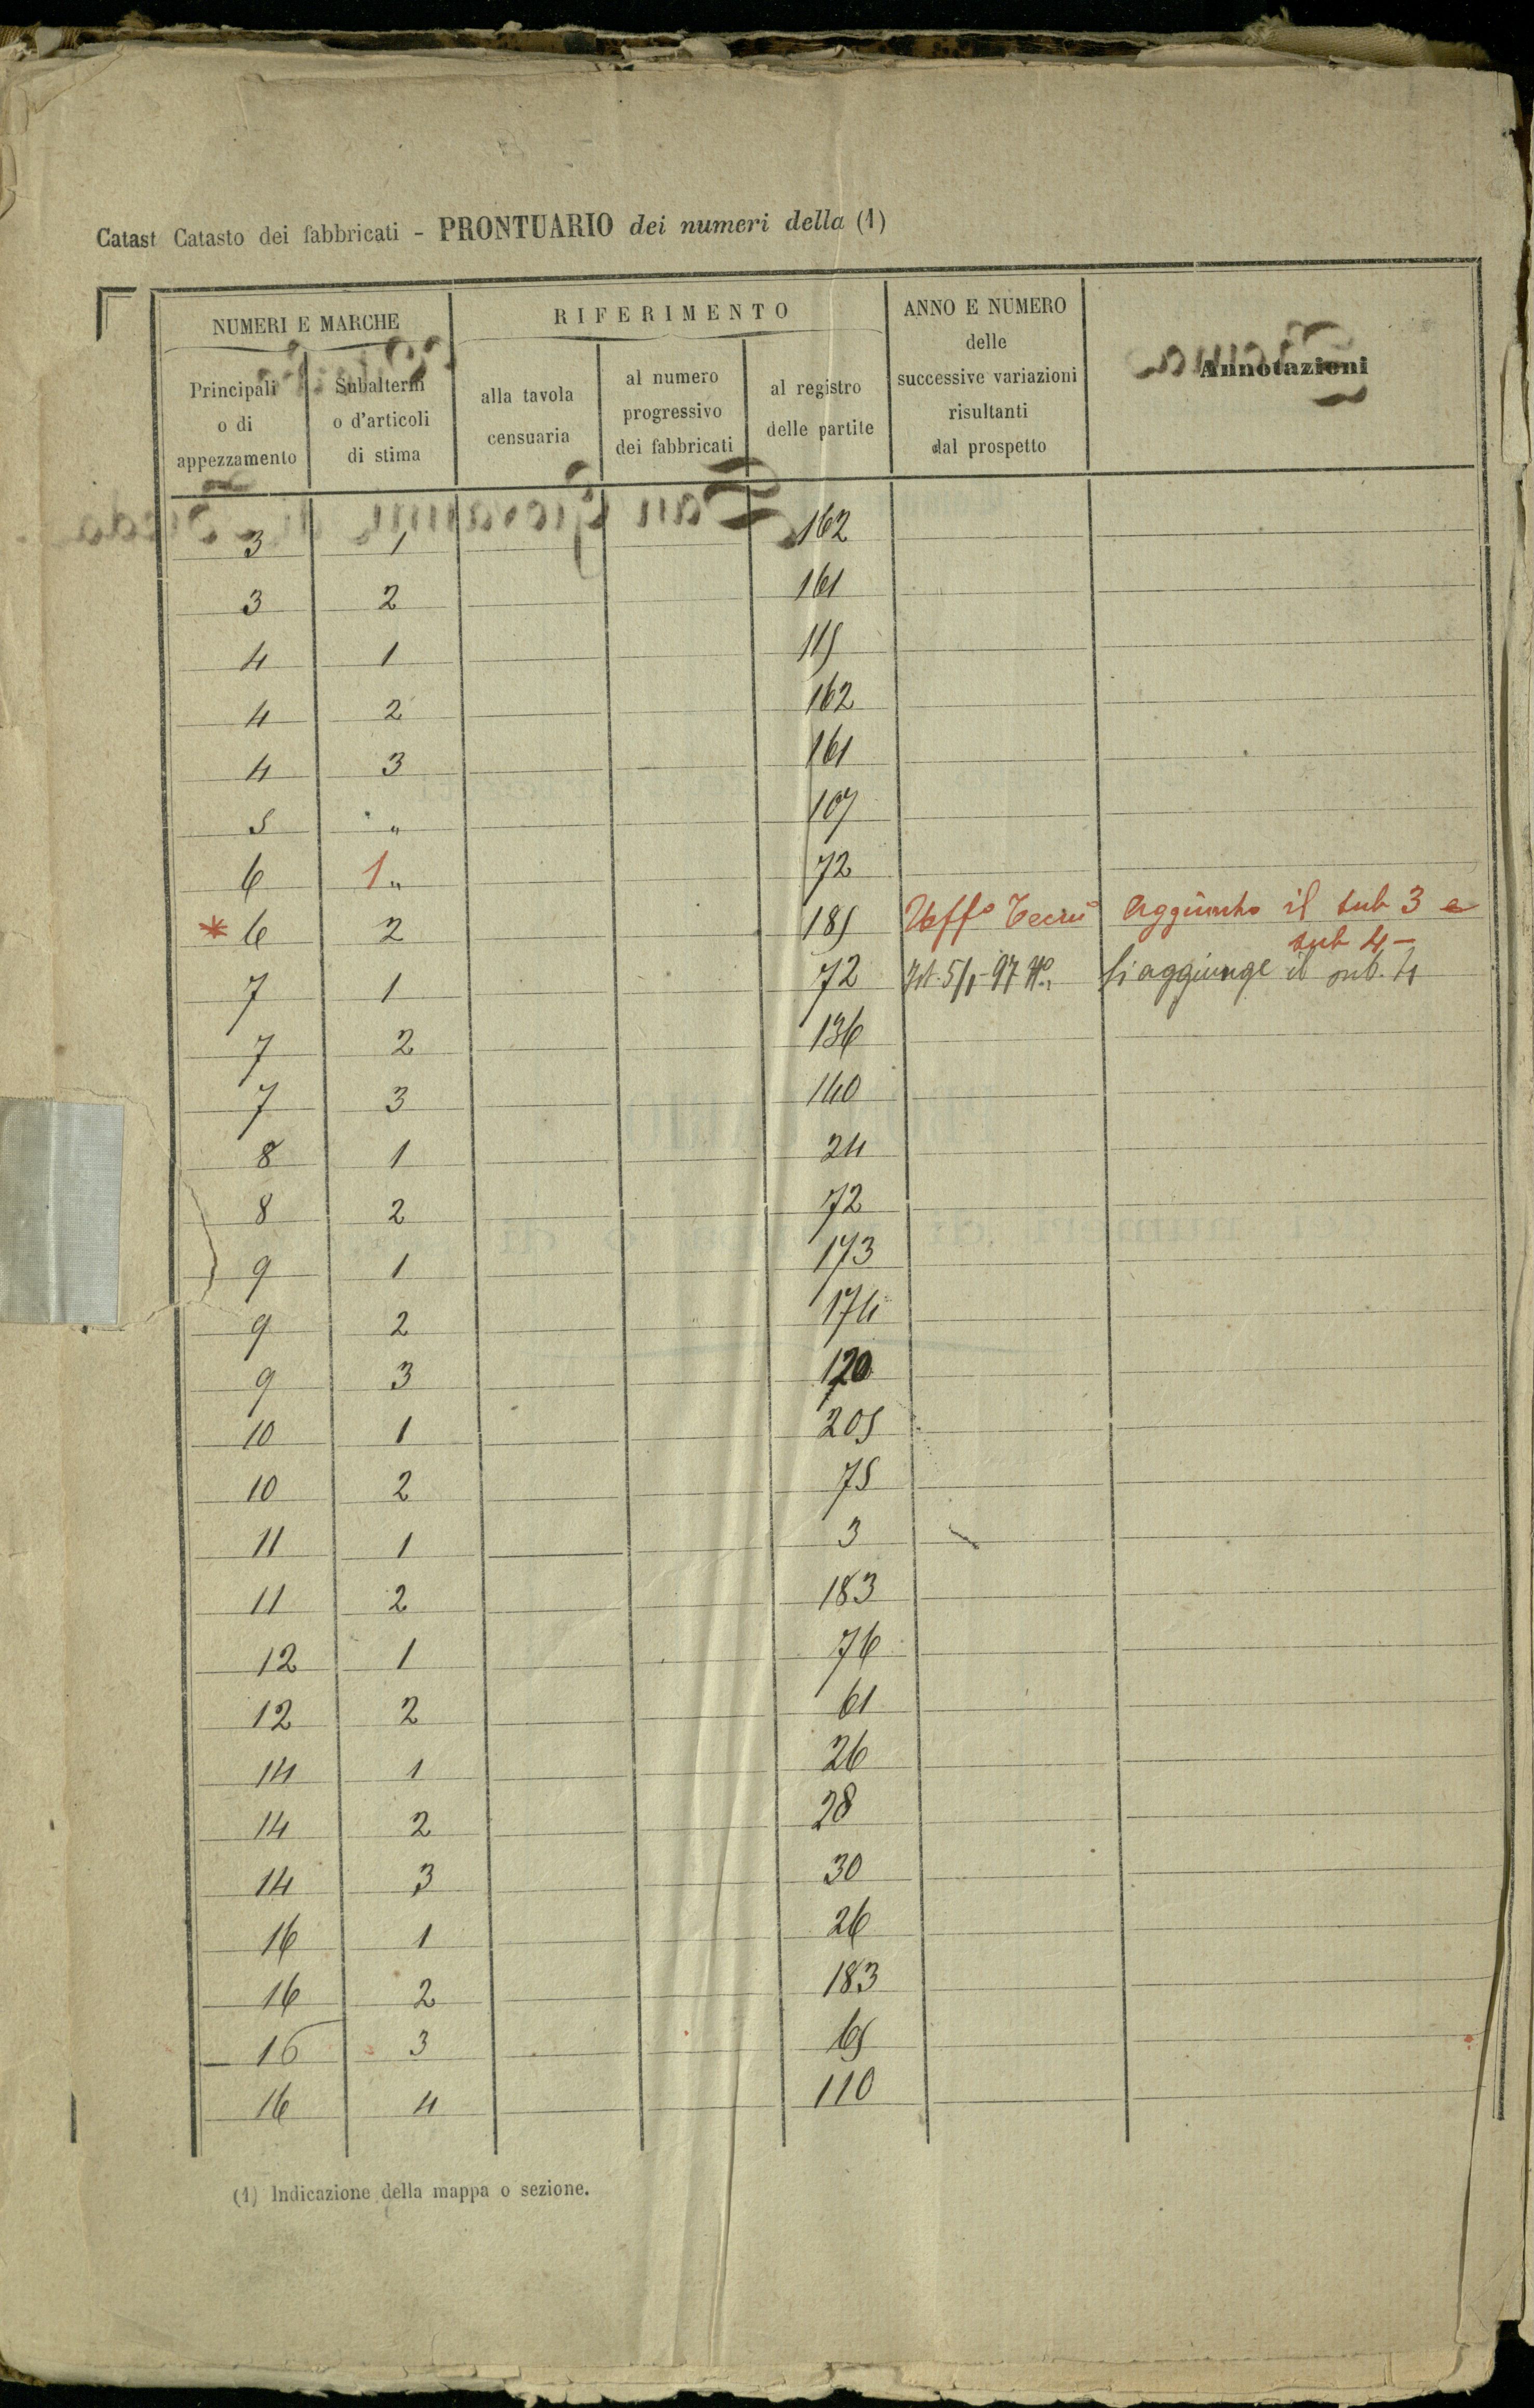 Catast Catasto dei fabbricati - PRONTUARIO dei numeri della (1)
NUMERI E MARCHE
RIFERIMENTO
ANNO E NUMERO
delle
successive variazioni
risultanti
dal prospetto
Annotazioni
Principali
o di
appezzamento
Subalterni
o d'articoli
di stima
alla tavola
censuaria
al numero
progressivo
dei fabbricati
al registro
delle partite
3 1 162
3 2 161
4 1 115
4 2 162
4 3 161
5 „ 107
6 1 „ 72
* 6 2 185 Uffº Tecnº Aggiunto il sub 3 e
sub 4 -
7 1 72 Si aggiunge il sub. 4
7 2 136
7 3 140
8 1 24
8 2 72
9 1 173
9 2 174
9 3 120
10 1 205
10 2 75
11 1 3
11 2 183
12 1 76
12 2 61
14 1 26
14 2 28
14 3 30
16 1 26
16 2 183
16 3 65
16 4 110
(1) Indicazione della mappa o sezione.